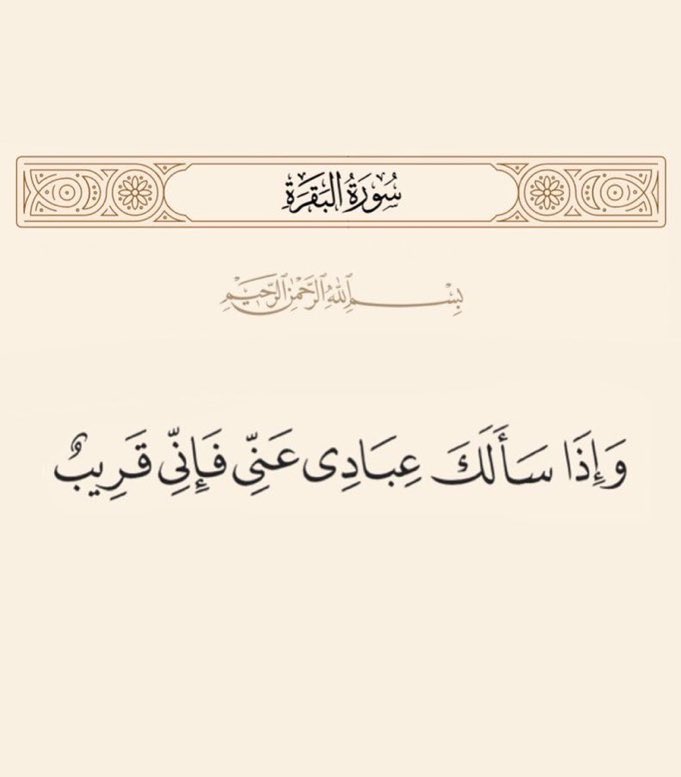 سُورَةُ البَقَرَةِ
بِسْمِ ٱللَّهِ ٱلرَّحْمَٰنِ ٱلرَّحِيمِ
وَإِذَا سَأَلَكَ عِبَادِى عَنِّى فَإِنِّى قَرِيبٌ